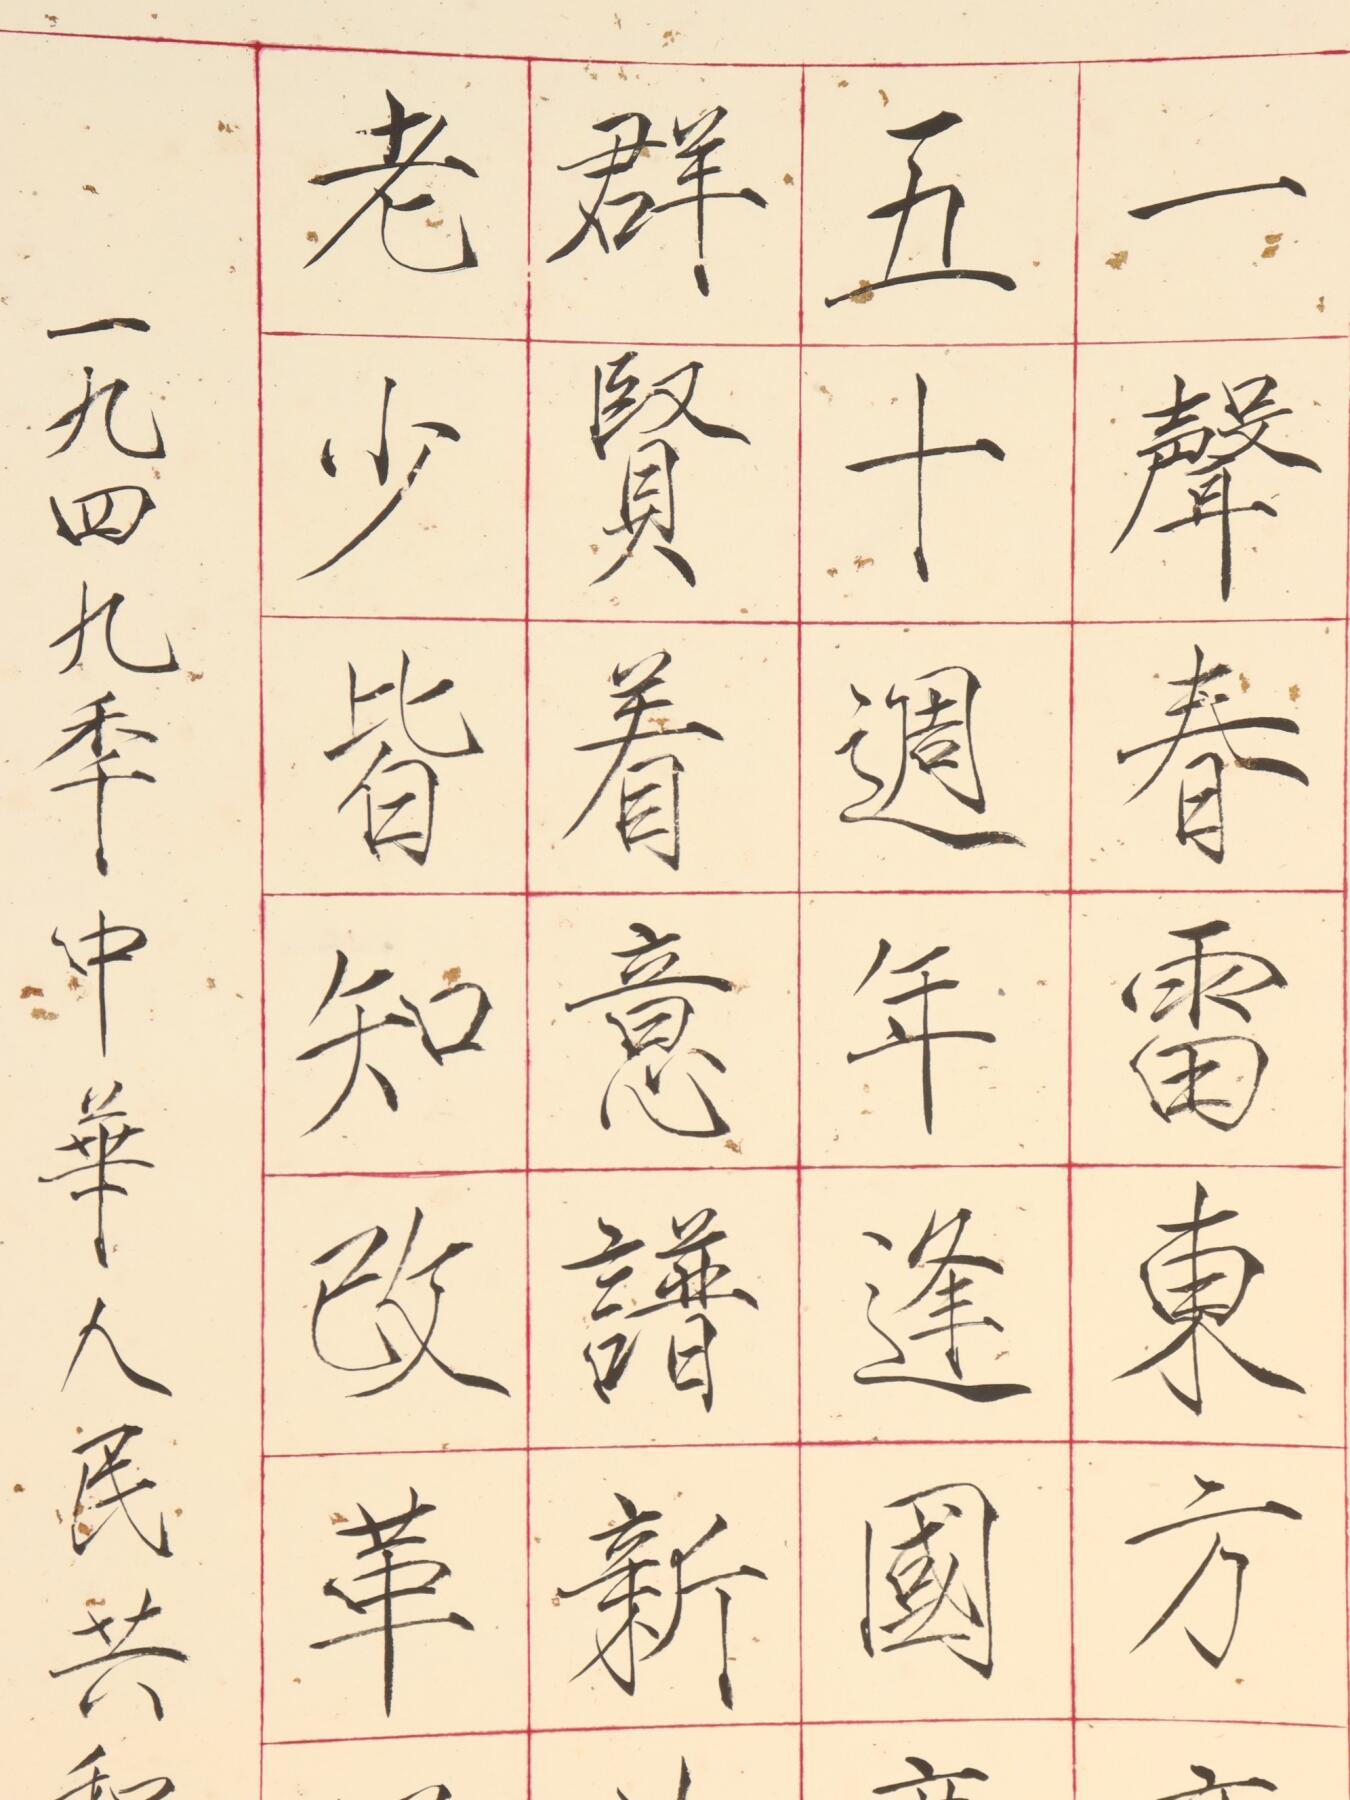 一聲春雷東方
五十週年逢國
群賢着意譜新
老少皆知改革
一九四九季中華人民共和